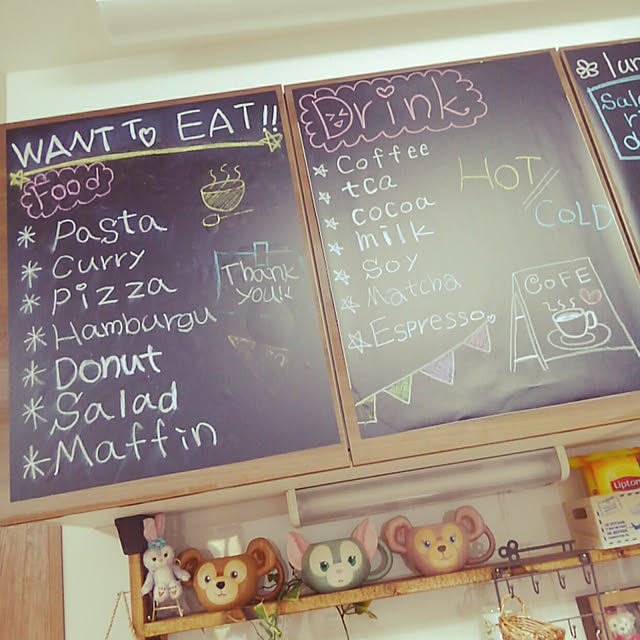 WANT TO EAT!!
Food
* Pasta
* Curry
* Pizza
* Hamburgu
* Donut
* Salad
* Maffin
Thank
you!!
Drink
☆ Coffee
☆ tea
☆ cocoa
☆ milk
☆ Soy
☆ Matcha
☆ Espresso
HOT
COLD
COFE
lun
Sala
Lipton